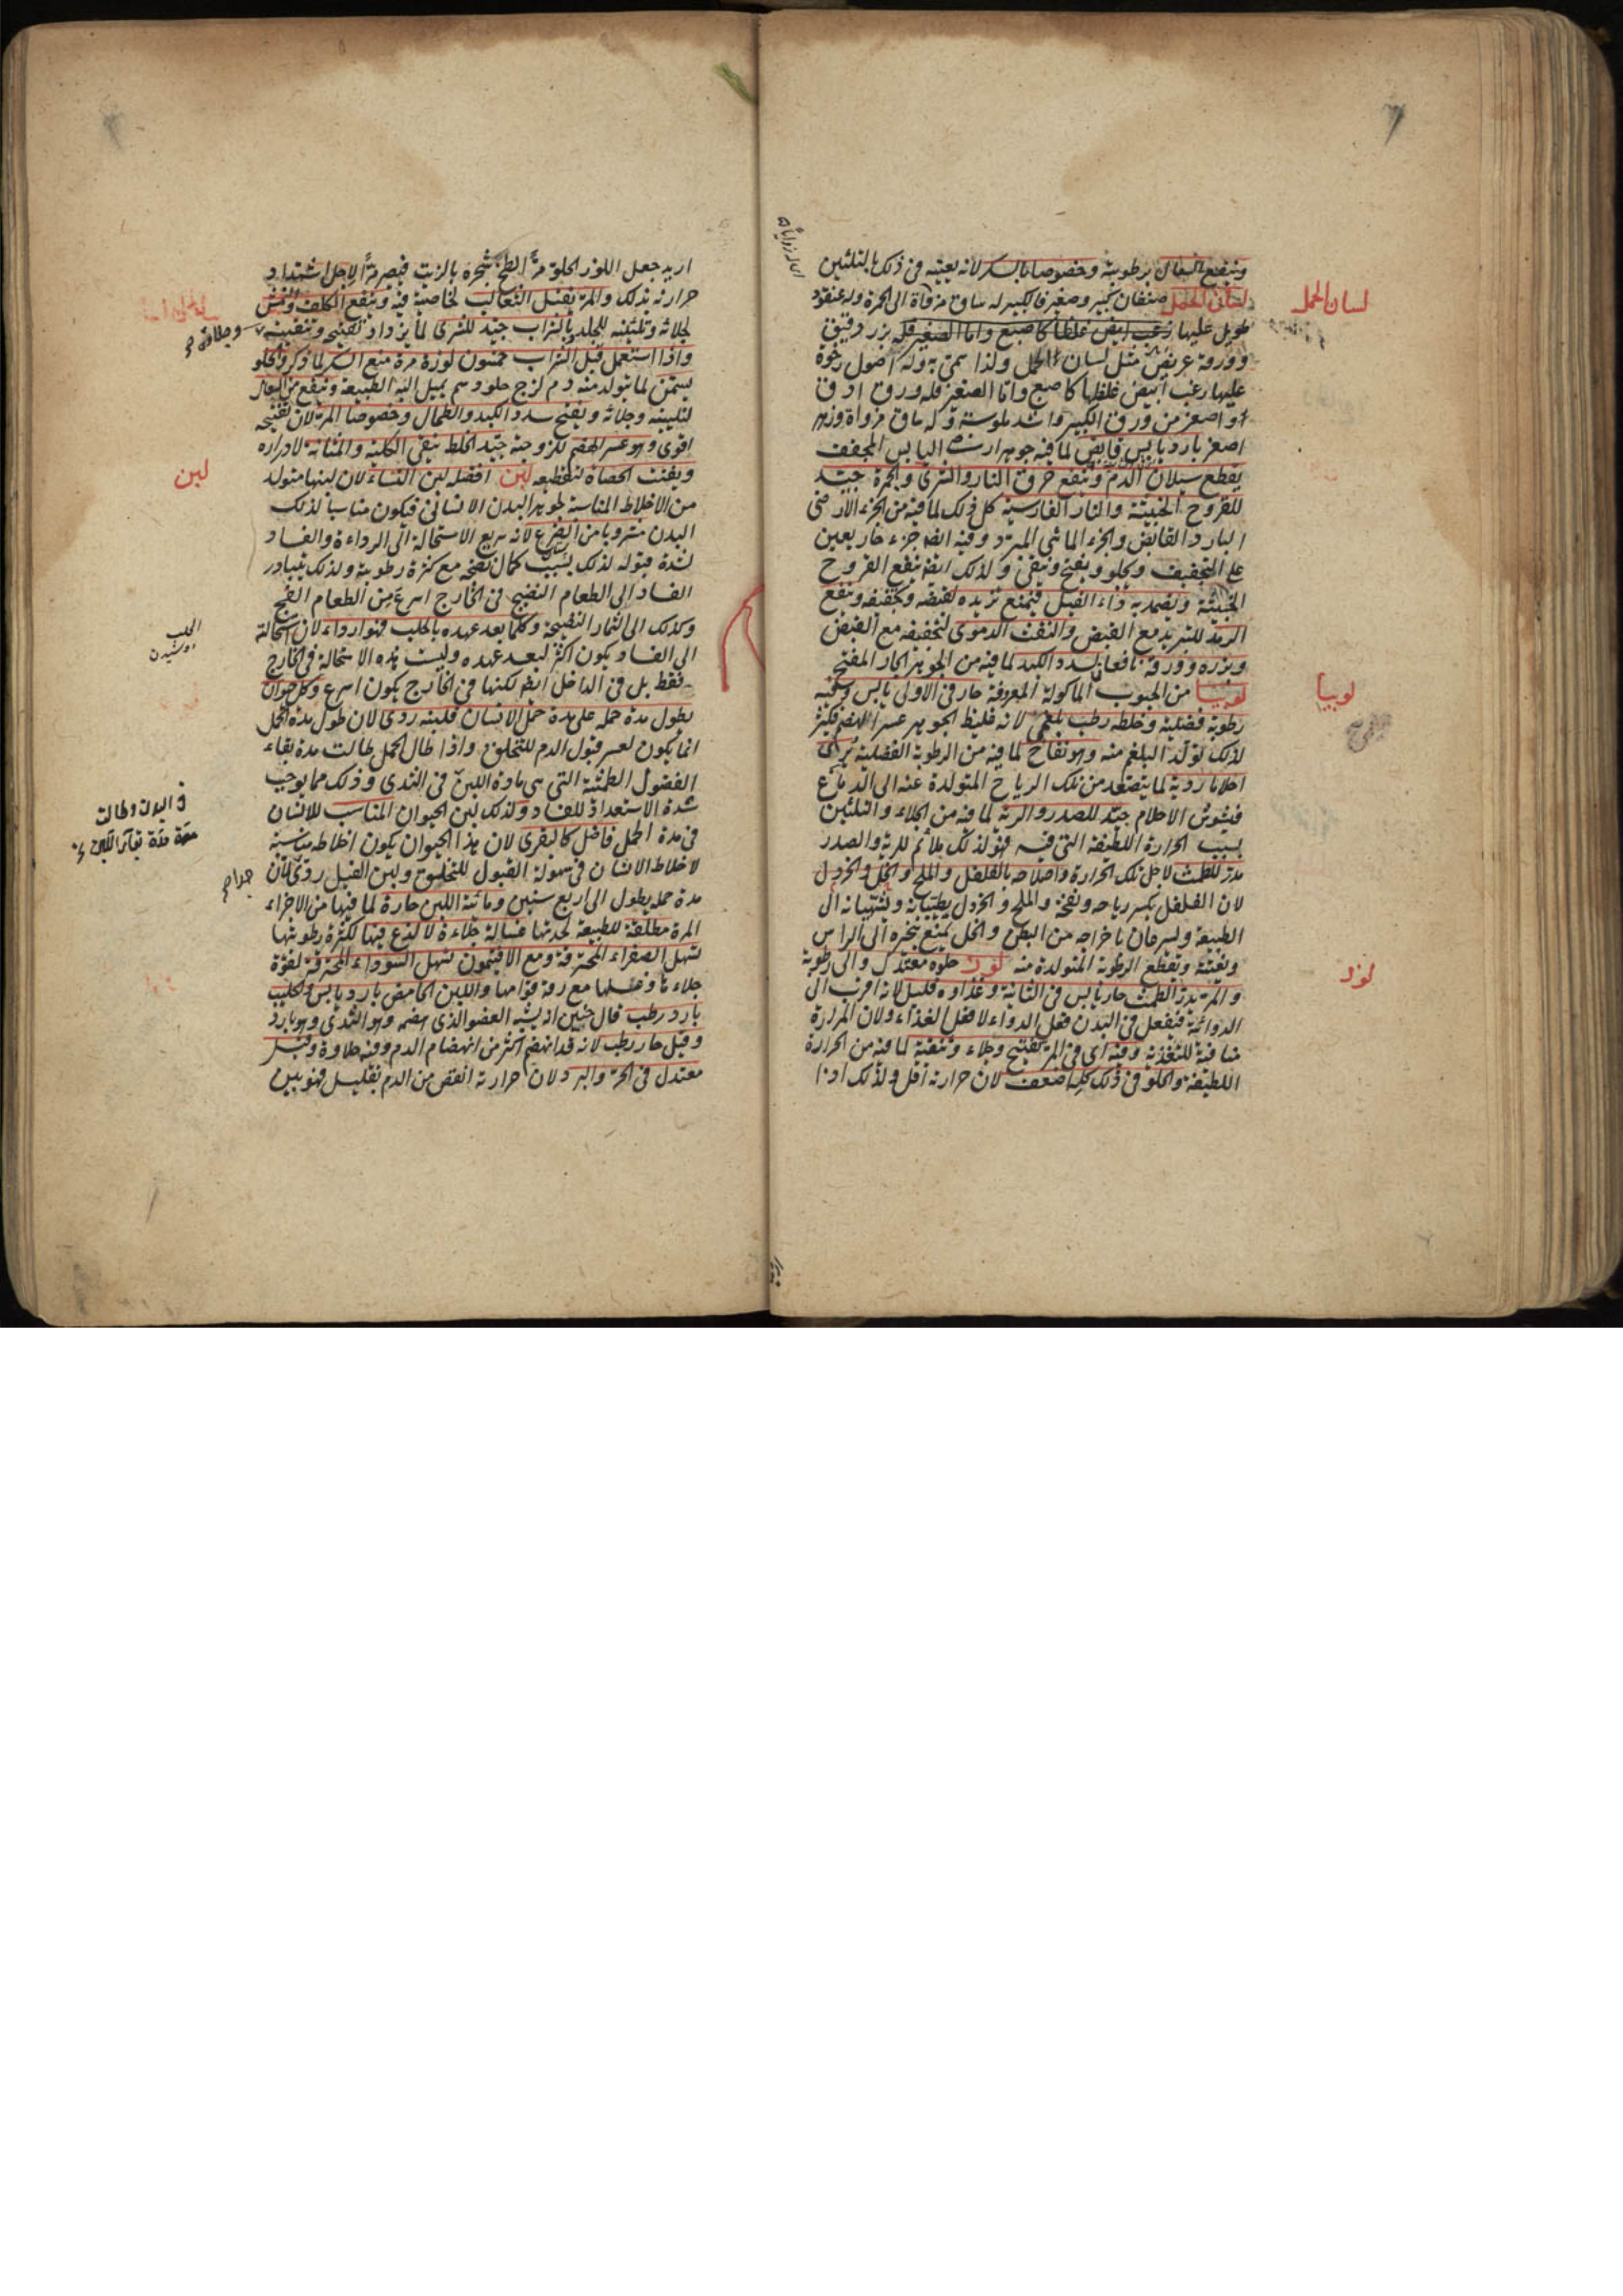 وينفع السعال برطوبته وخصوصا بالسكر لانه يعينه في ذلك بالتليين
لسان الحمل صنفان كبير وصغير فالكبير له ساق مزواة الى الحمرة وله عنقود
طويل عليها زغب ابيض غلظا كاصبع واما الصغير فله بزر دقيق
وورقه عريض مثل لسان الحمل ولذا سمي به وله اصول رخوة
عليها زغب ابيض غلظها كاصبع واما الصغير فله ورق ادق
او اصغر من ورق الكبير واشد ملوسة وله ساق مزواة وزهر
اصفر بارد يابس قابض لما فيه جوهر ارضي اليابس المجفف
يقطع سيلان الدم وينفع حرق النار والشرى والحمرة جيد
للقروح الخبيثة والنار الفارسية كل ذلك لما فيه من الجزء الارضي
البارد القابض والجزء المائي المبرد وفيه ايضا جزء حار يعين
على التجفيف ويجلو ويفتح وينقي ولذلك ايضا ينفع القروح
الخبيثة ويضمد به داء الفيل فيمنع تزيده لقبضه وتجفيفه وينفع
الرمد للتبريد مع القبض والنفث الدموي لتجفيفه مع القبض
وبزره وورقه نافعان لسدد الكبد لما فيه من الجوهر الحار المفتح
لوبيا من الحبوب الماكولة المعروفة حار في الاولى يابس وفيه
رطوبة فضلية وخلطه رطب بلغمي لانه غليظ الجوهر عسر الهضم فيكثر
لذلك تولد البلغم منه وهو نفاخ لما فيه من الرطوبة الفضلية يرى
احلاما ردية لما يتصعد من تلك الرياح المتولدة عنه الى الدماغ
فيشوش الاحلام جيد للصدر والرية لما فيه من الجلاء والتليين
بسبب الحرارة اللطيفة التي فيه فهو لذلك يلائم للرية والصدر
مدر للطمث لاجل تلك الحرارة واصلاحه بالفلفل والملح والخل والخردل
لان الفلفل يكسر رياحه ونفخه والملح والخردل يطيبانه ويشهيانه الى
الطبيعة ويسرعان باخراجه من البطن والخل يمنع تبخره الى الراس
وتغثيته ويقطع الرطوبة المتولدة منه لوز حلوه معتدل والى رطوبة
والمر يدر الطمث حار يابس في الثانية وغذاؤه قليل لانه اقرب الى
الدوائية فيفعل في البدن فعل الدواء لا فعل الغذاء ولان المرارة
منافية للتغذية وفيه اي في المر تفتيح وجلاء وتنقية لما فيه من الحرارة
اللطيفة والحلو في ذلك كله اضعف لان حرارته اقل ولذلك اذا
لسان الحمل
لوبيا
لوز
اريد جعل اللوز الحلو مرا يطبخ شجره بالزيت فيصير مرا لاجل اشتداد
حرارته بذلك والمر يقتل الثعالب لخاصية فيه وينفع الكلف والنمش
لجلائه وتليينه للجلد بالشراب جيد للشرى لما يزداد تفتيحه وتنقيته
واذا استعمل قبل الشراب خمسون لوزة مرة منع السكر لما ذكر والحلو
يسمن لما يتولد منه دم لزج حلو دسم يميل اليه الطبيعة وينفع من السعال
لتليينه وجلائه ويفتح سدد الكبد والطحال وخصوصا المر لان تفتيحه
اقوى وهو عسر الهضم للزوجته جيد الخلط ينقي الكلية والمثانة لادراره
ويفتت الحصاة لتقطيعه لبن افضله لبن النساء لان لبنها متولد
من الاخلاط المناسبة لجوهر البدن الانساني فيكون مناسبا لذلك
البدن مشروبا من الضرع لانه سريع الاستحالة الى الرداءة والفساد
لشدة قبوله لذلك بسبب كمال نضجه مع كثرة رطوبته ولذلك يتبادر
الفساد الى الطعام النضيج في الخارج اسرع من الطعام الفج
وكذلك الى الثمار النضيجة وكلما بعد عهده بالحلب فهو ارداء لان استحالته
الى الفساد يكون اكثر لبعد عهده وليست هذه الاستحالة في الخارج
فقط بل في الداخل ايضا لكنها في الخارج يكون اسرع وكل حيوان
يطول مدة حمله على مدة حمل الانسان فلبنه ردي لان طول مدة الحمل
انما يكون لعسر قبول الدم للتخلق واذا طال الحمل طالت مدة بقاء
الفضول الطمثية التي هي مادة اللبن في الثدي وذلك مما يوجب
شدة الاستعداد للفساد ولذلك لبن الحيوان المناسب للانسان
في مدة الحمل فاضل كالبقري لان هذا الحيوان يكون اخلاطه مناسبة
لاخلاط الانسان في سهولة القبول للتخلق ولبن الفيل ردي لان
مدة حمله يطول الى اربع سنين ومائية اللبن حارة لما فيها من الاجزاء
المرة مطلقة للطبيعة لحدتها غسالة جلاءة لا لذع فيها لكثرة رطوبتها
تسهل الصفراء المحترقة ومع الافتيمون تسهل السوداء المحترقة لقوة
جلاءها وغسلها مع رقة قوامها واللبن الحامض بارد يابس والحليب
بارد رطب قال حنين اذ يشبه العضو الذي هضمه وهو الثدي وهو بارد
وقيل حار رطب لانه قد انهضم اكثر من انهضام الدم وفيه حلاوة وقيل
معتدل في الحر والبرد لان حرارته انقص من الدم بقليل فهو بين
لبن
الحلب
دوشيدن